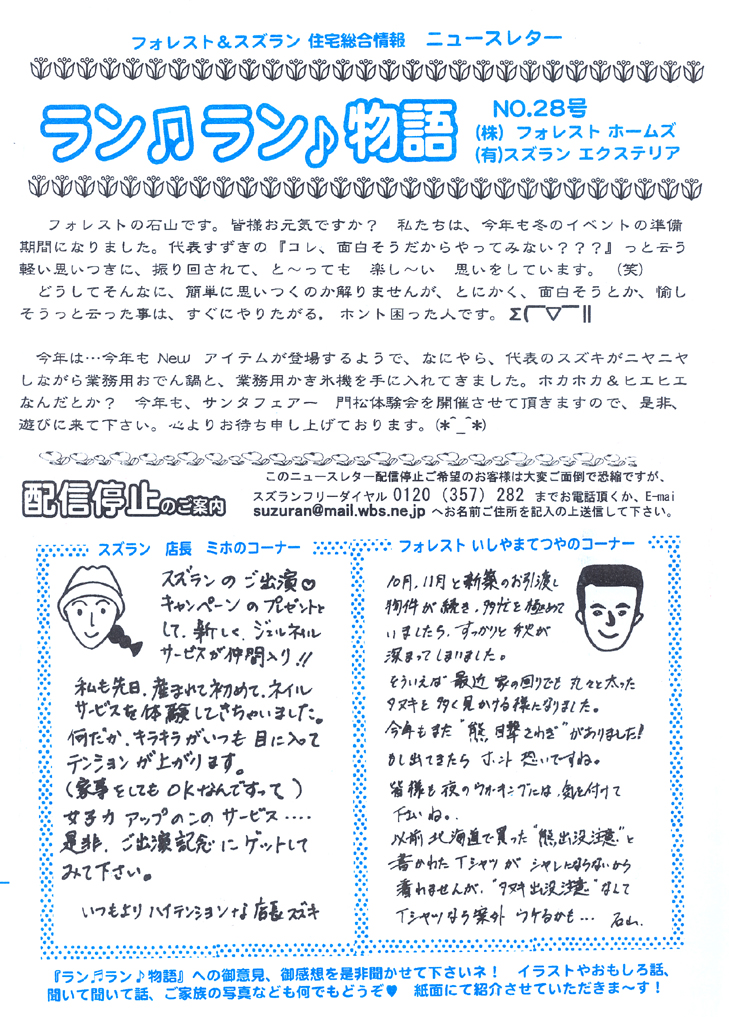 フォレスト＆スズラン 住宅総合情報　ニュースレター
ラン♫ラン♪物語
NO.28号
(株) フォレスト ホームズ
(有)スズラン エクステリア
フォレストの石山です。皆様お元気ですか？　私たちは、今年も冬のイベントの準備
期間になりました。代表すずきの『コレ、面白そうだからやってみない？？？』っと云う
軽い思いつきに、振り回されて、と～っても　楽し～い　思いをしています。（笑）
どうしてそんなに、簡単に思いつくのか解りませんが、とにかく、面白そうとか、愉し
そうっと云った事は、すぐにやりたがる。ホント困った人です。Σ(￣▽￣‖
今年は…今年も New　アイテムが登場するようで、なにやら、代表のスズキがニヤニヤ
しながら業務用おでん鍋と、業務用かき氷機を手に入れてきました。ホカホカ＆ヒエヒエ
なんだとか？　今年も、サンタフェアー　門松体験会を開催させて頂きますので、是非、
遊びに来て下さい。心よりお待ち申し上げております。(*^_^*)
配信停止のご案内
このニュースレター配信停止ご希望のお客様は大変ご面倒で恐縮ですが、
スズランフリーダイヤル 0120（357）282 までお電話頂くか、E-mai
suzuran@mail.wbs.ne.jp へお名前ご住所を記入の上送信して下さい。
スズラン　店長　ミホのコーナー
スズランのご出演♡
キャンペーンのプレゼントと
して、新しく、ジェルネイル
サービスが仲間入り!!
私も先日、産まれて初めて、ネイル
サービスを体験してきちゃいました。
何だか、キラキラがいつも目に入って
テンションが上がります。
（家事をしてもOKなんですって）
女子力アップのこのサービス‥‥
是非、ご出演記念にゲットして
みて下さい。
いつもよりハイテンションな店長スズキ
フォレスト いしやまてつやのコーナー
10月,11月と新築のお引渡し
物件が続き、多忙を極めて
いましたら、すっかりと秋が
深まってしまいました。
そういえば 最近 家の回りでも 丸々と太った
タヌキを多く見かける様になりました。
今年もまた“熊 目撃さわぎ”がありました!
もし出てきたら ホント 恐いですね。
皆様も夜のウォーキングには、気を付けて
下さいね。
以前 北海道で買った“熊出没注意”と
書かれたTシャツが シャレにならないから
着れませんが、“タヌキ出没注意”なんて
Tシャツなら案外 ウケるかも… 石山.
『ラン♬ラン♪物語』への御意見、御感想を是非聞かせて下さいネ！　イラストやおもしろ話、
聞いて聞いて話、ご家族の写真なども何でもどうぞ♥　紙面にて紹介させていただきま～す！